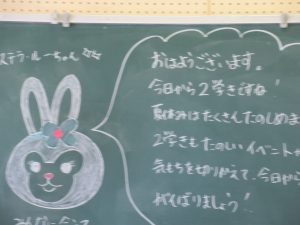 ステラ・ルーちゃん
おはようございます。
今日から2学きですね!
夏休みはたくさんたのしめま
2学きもたのしいイベントが
気もちを切りかえて、今日から
がんばりましょう!